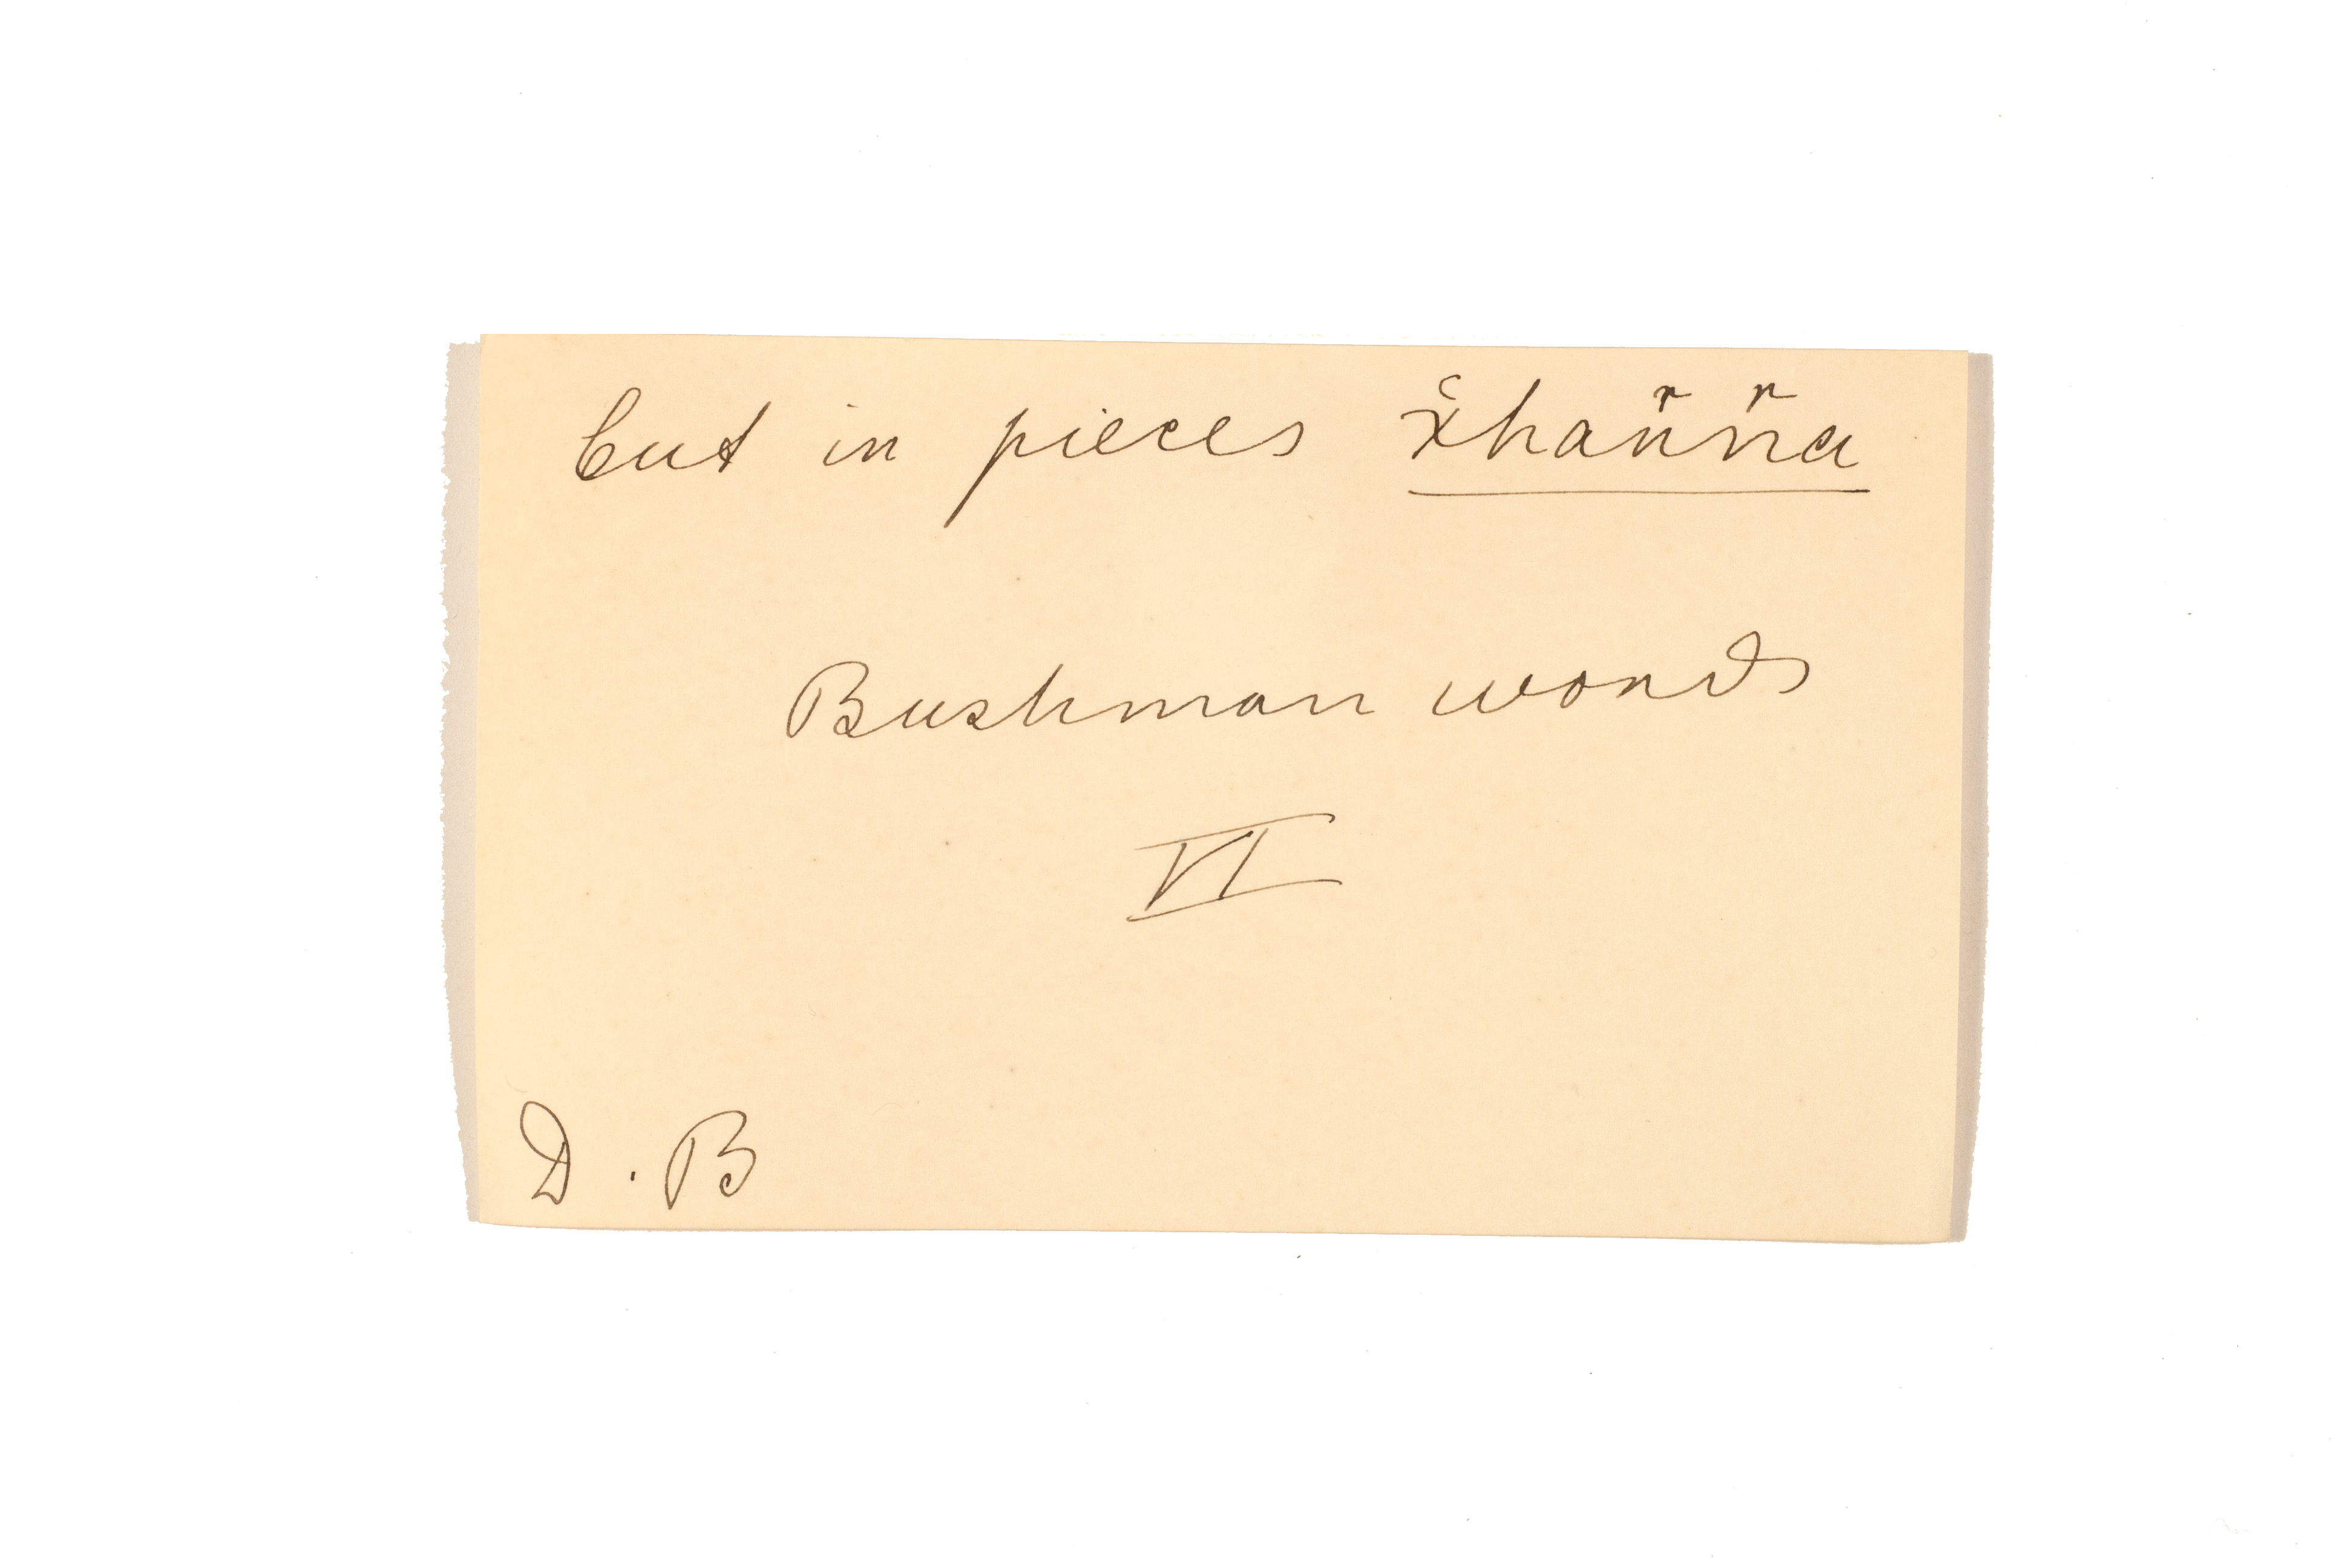 Cut in pieces x̆hañ̈ña
Bushman words
VI
D. B